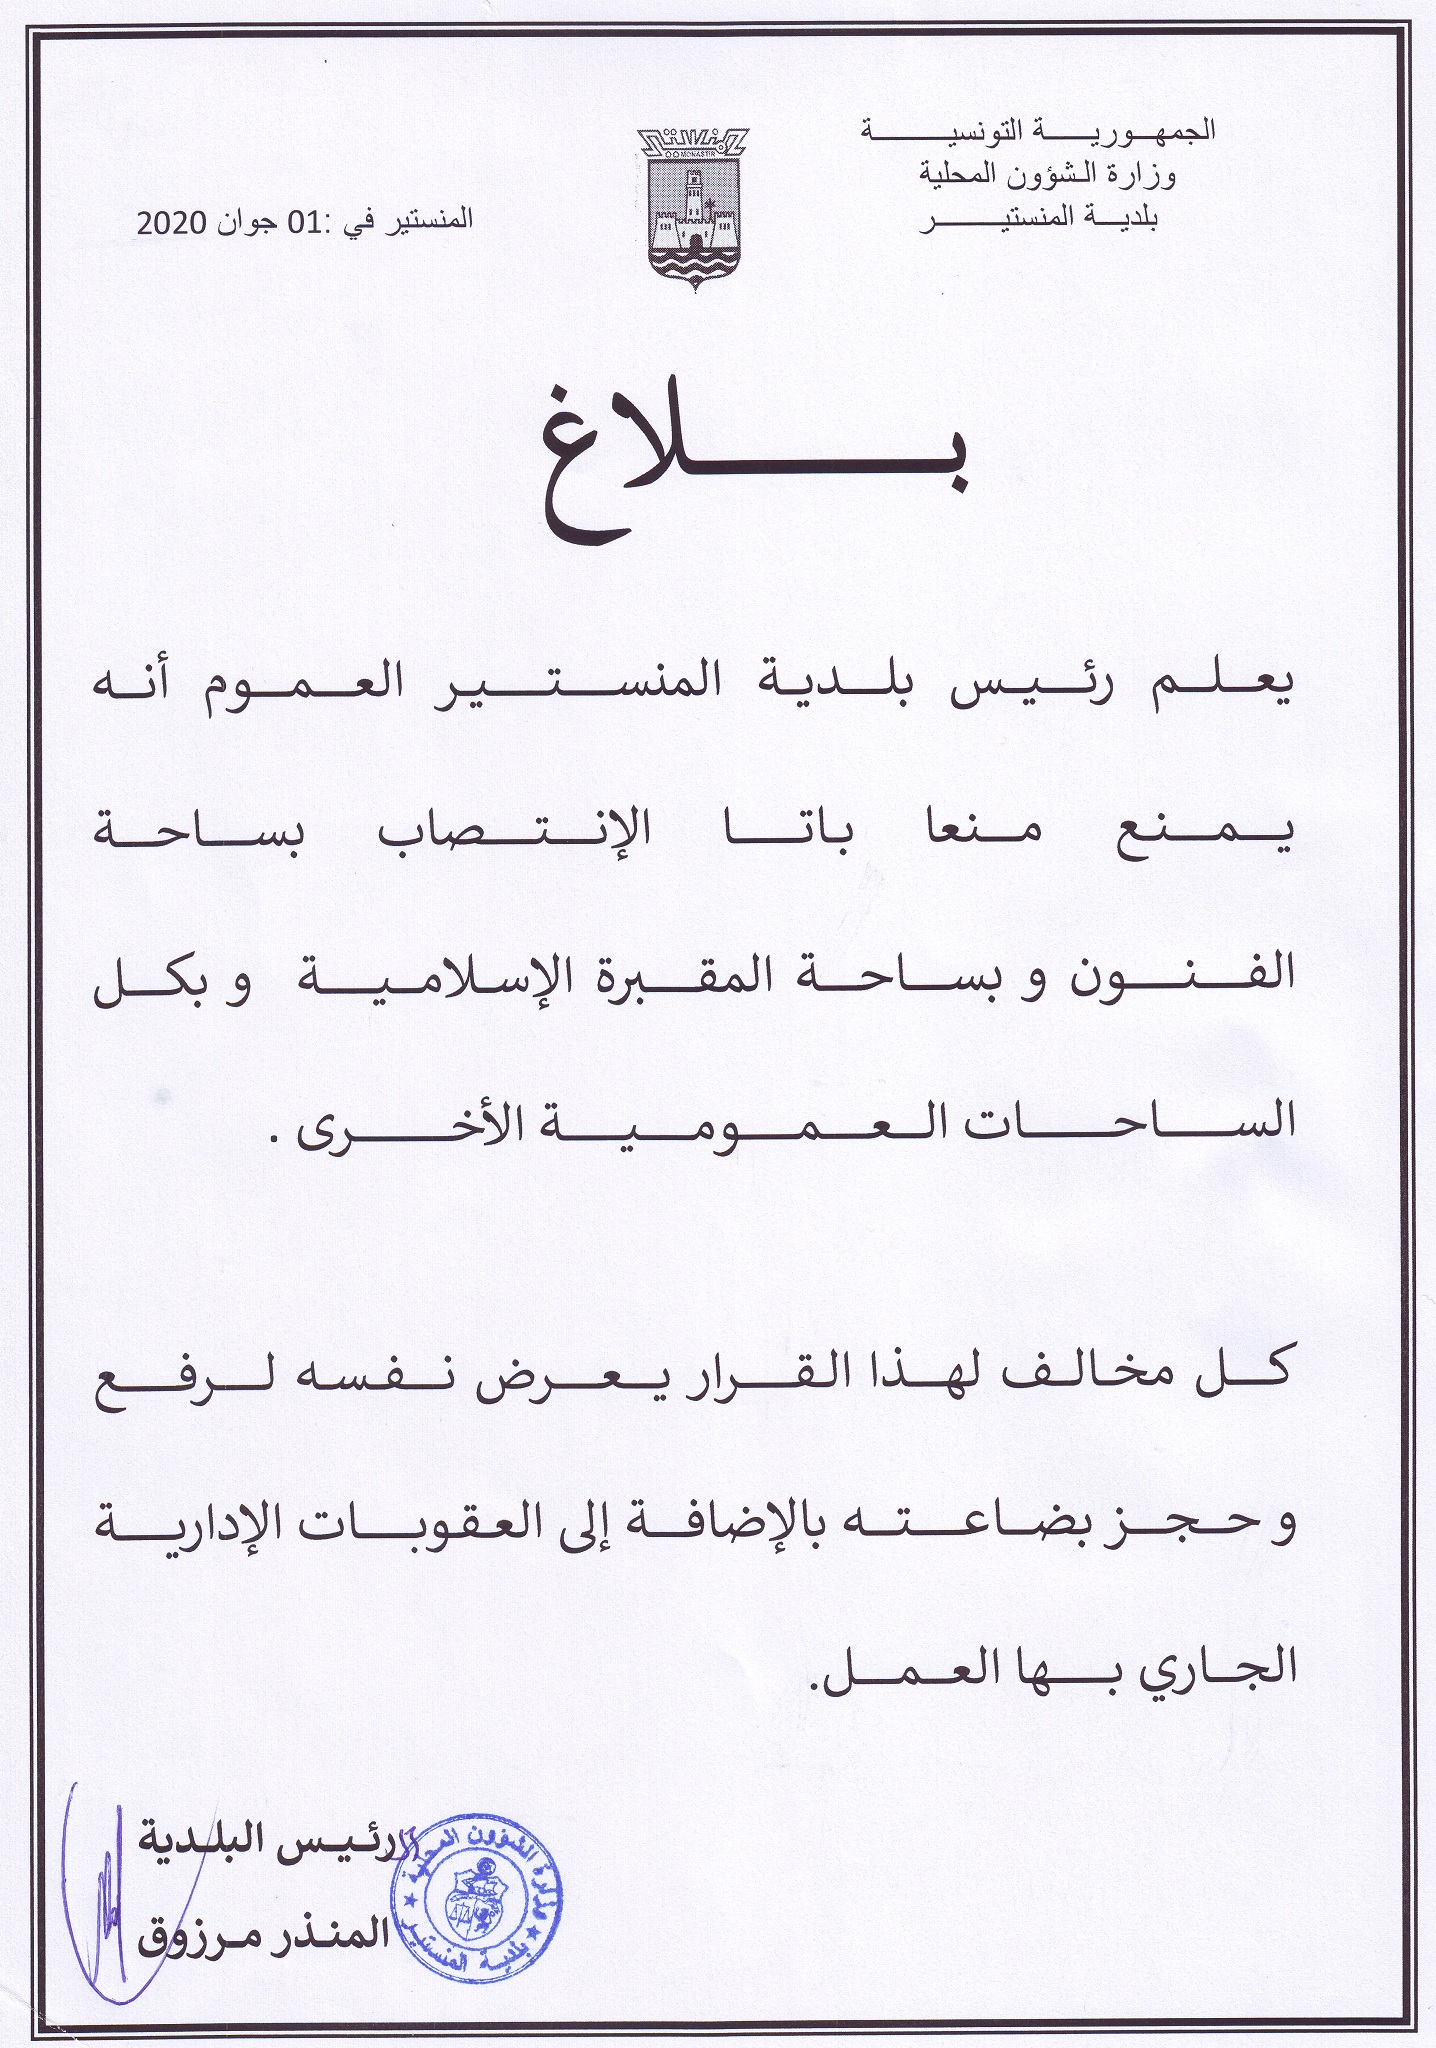 الجمهورية التونسية
وزارة الشؤون المحلية
بلدية المنستير
المنستير
MONASTIR
المنستير في :01 جوان 2020
بلاغ
يعلم رئيس بلدية المنستير العموم أنه
يمنع منعا باتا الإنتصاب بساحة
الفنون و بساحة المقبرة الإسلامية و بكل
الساحات العمومية الأخرى .
كل مخالف لهذا القرار يعرض نفسه لرفع
و حجز بضاعته بالإضافة إلى العقوبات الإدارية
الجاري بها العمل.
رئيس البلدية
المنذر مرزوق
وزارة الشؤون المحلية
بلدية المنستير